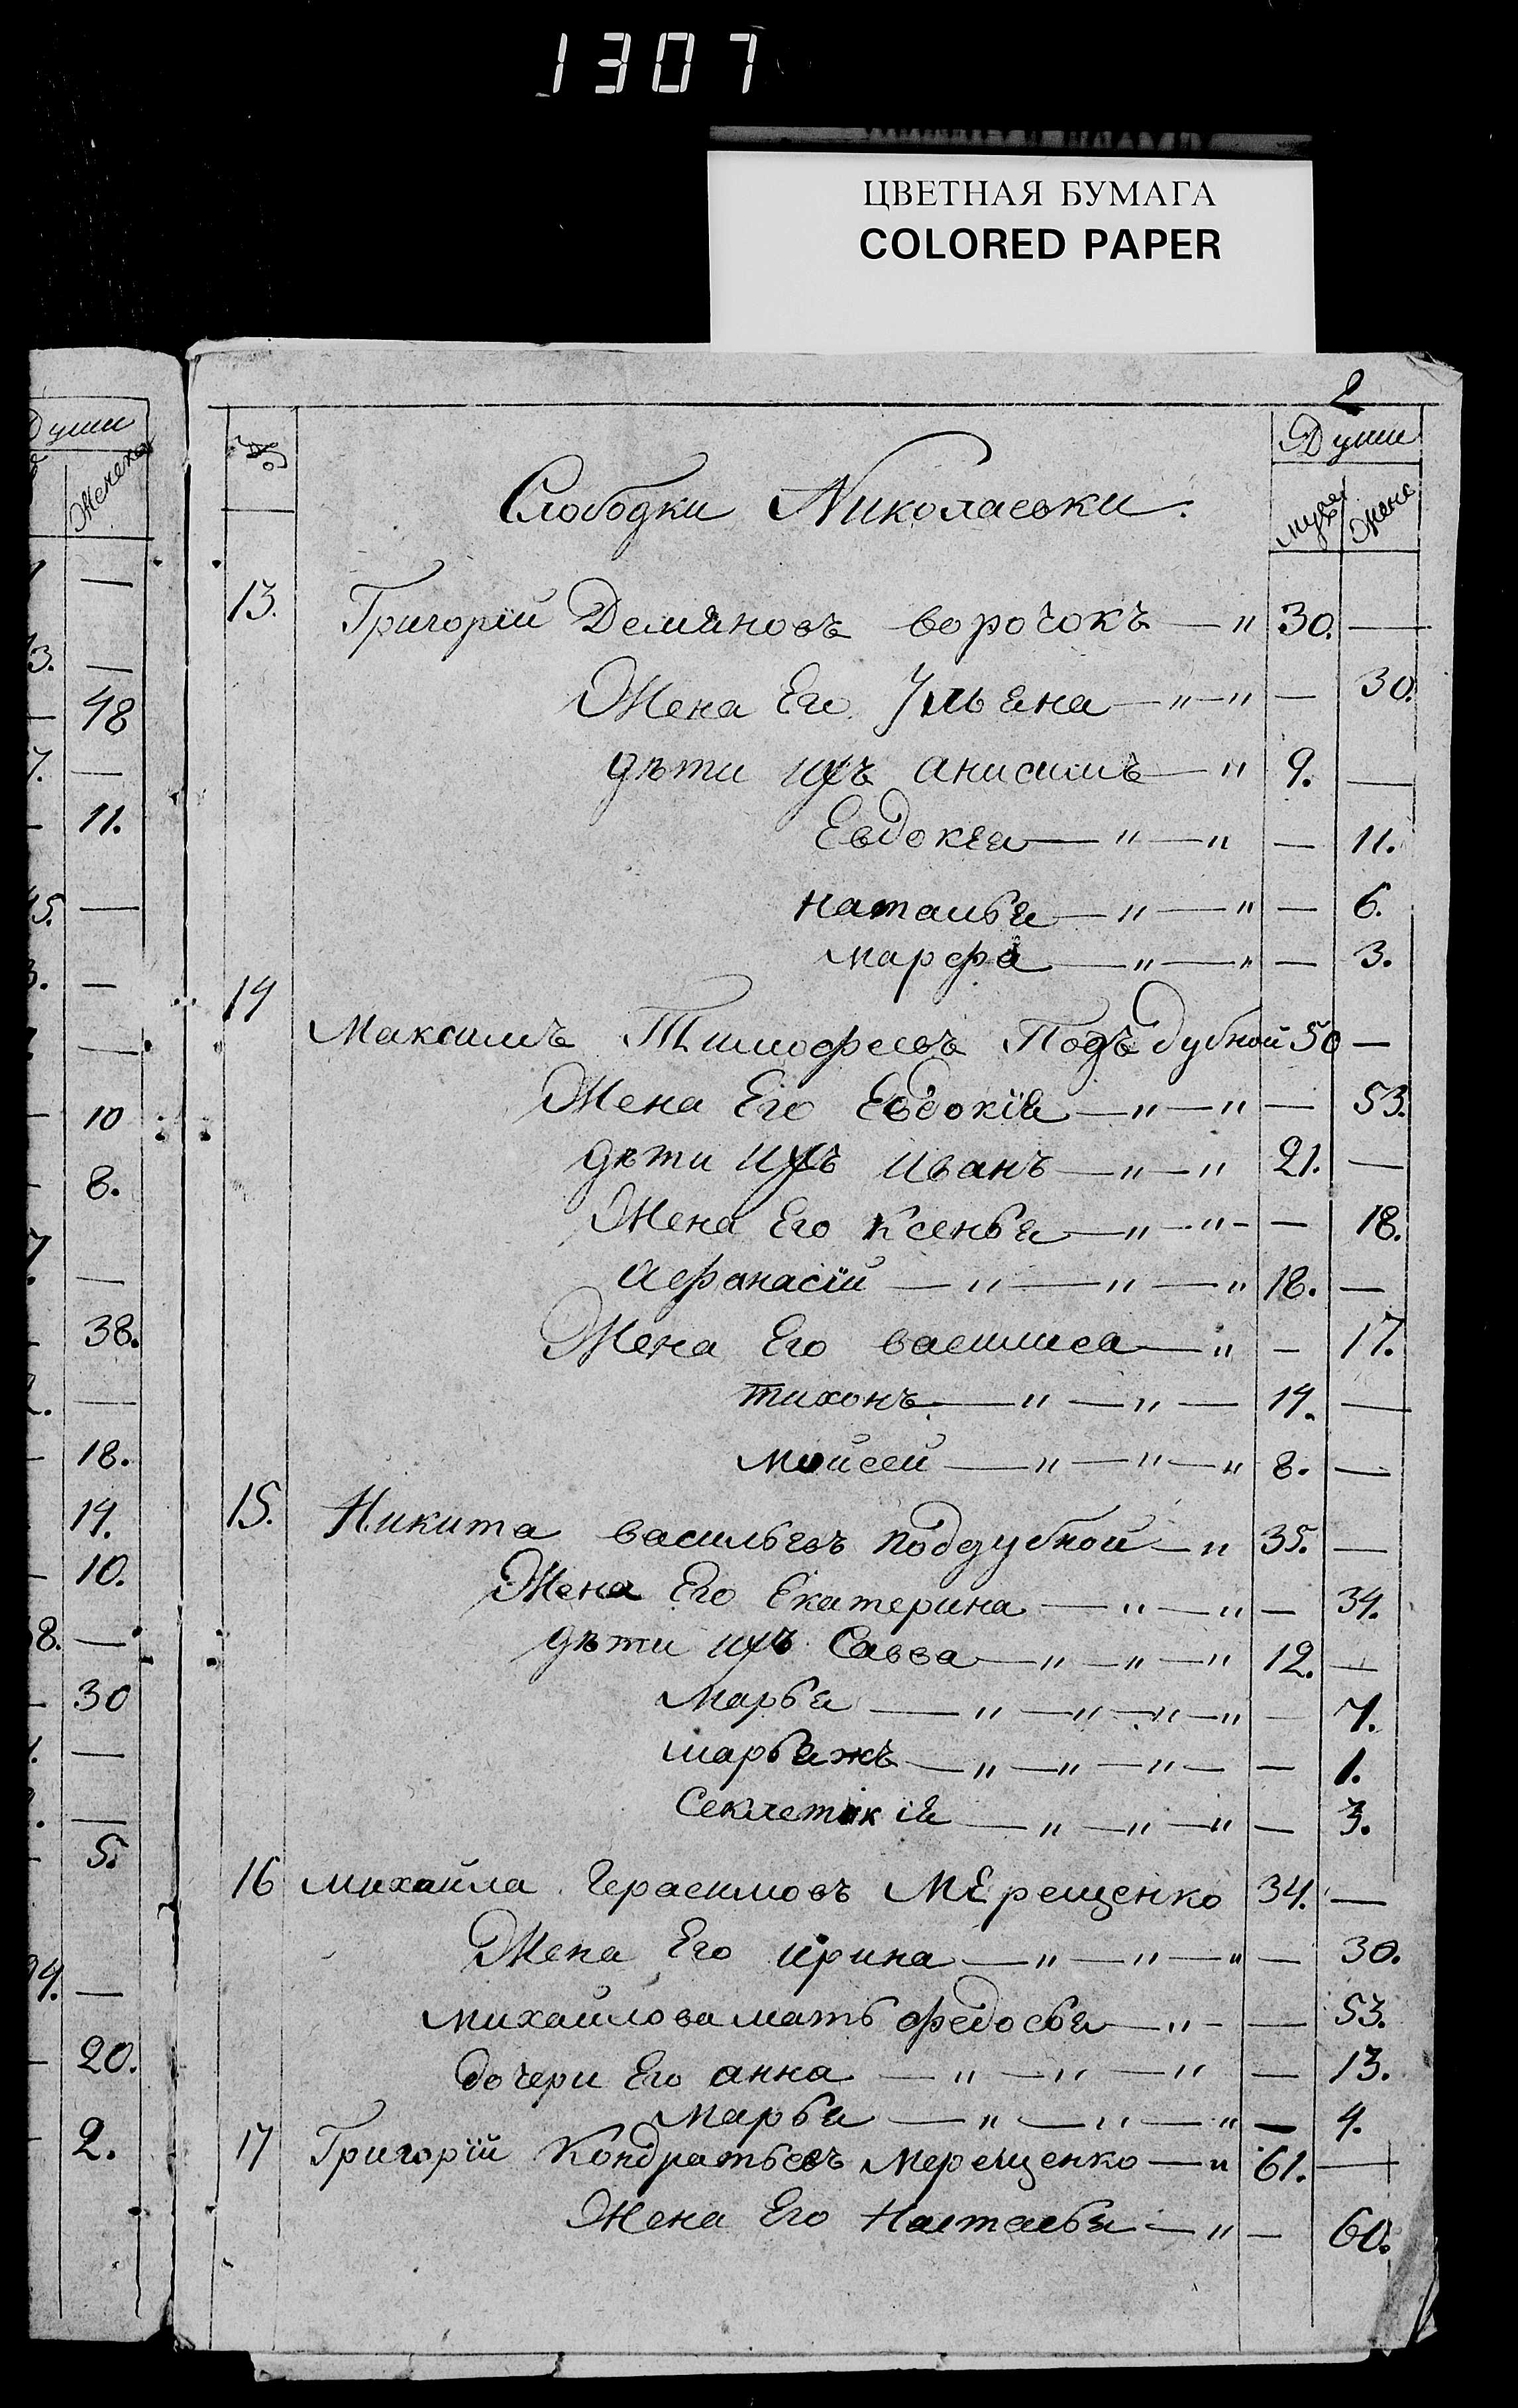 1307
ЦВЕТНАЯ БУМАГА
COLORED PAPER
2
Души
Женска
№
Души
Слободки Николаевки.
муж жен
13. Григорій Демяновъ ворочокъ — " 30. —
Жена Его Ульяна — " — " — 30.
дѣти ихъ анисимъ — " 9. —
Евдокея — " — " — 11.
наталья — " — " — 6.
марфа — " — " — 3.
14
Максимъ Тимофеевъ Подъдубной 50 —
Жена Его Евдокія — " — " — 53.
дѣти ихъ иванъ — " — " 21. —
Жена Его Ксенья — " — " — — 18.
афонасій — " — " — " 18. —
Жена Его василиса — " — 17.
тихонъ — " — " — 14. —
мойсей — " — " — " 8. —
15. Никита васильевъ поддубной — " 35. —
Жена Его Екатерина — " — " — 34.
дѣти ихъ Савва — " — " — " 12. —
Марья — " — " — " — " — 7.
марья жъ — " — " — " — — 1.
Секлетикія — " — " — " — 3.
16 михайла Герасимовъ МЕрещенко 34. —
Жена Его ирина — " — " — " — 30.
михайлова мать федосья — " — — 53.
дочери Его анна — " — " — " — 13.
Марья — " — " — " — 4.
17 Григорій Кондратьевъ Мерещенко — " 61. —
Жена Его Настасья — " — 60.
48
11.
10
8.
38.
18.
14.
10.
30
5.
20.
2.